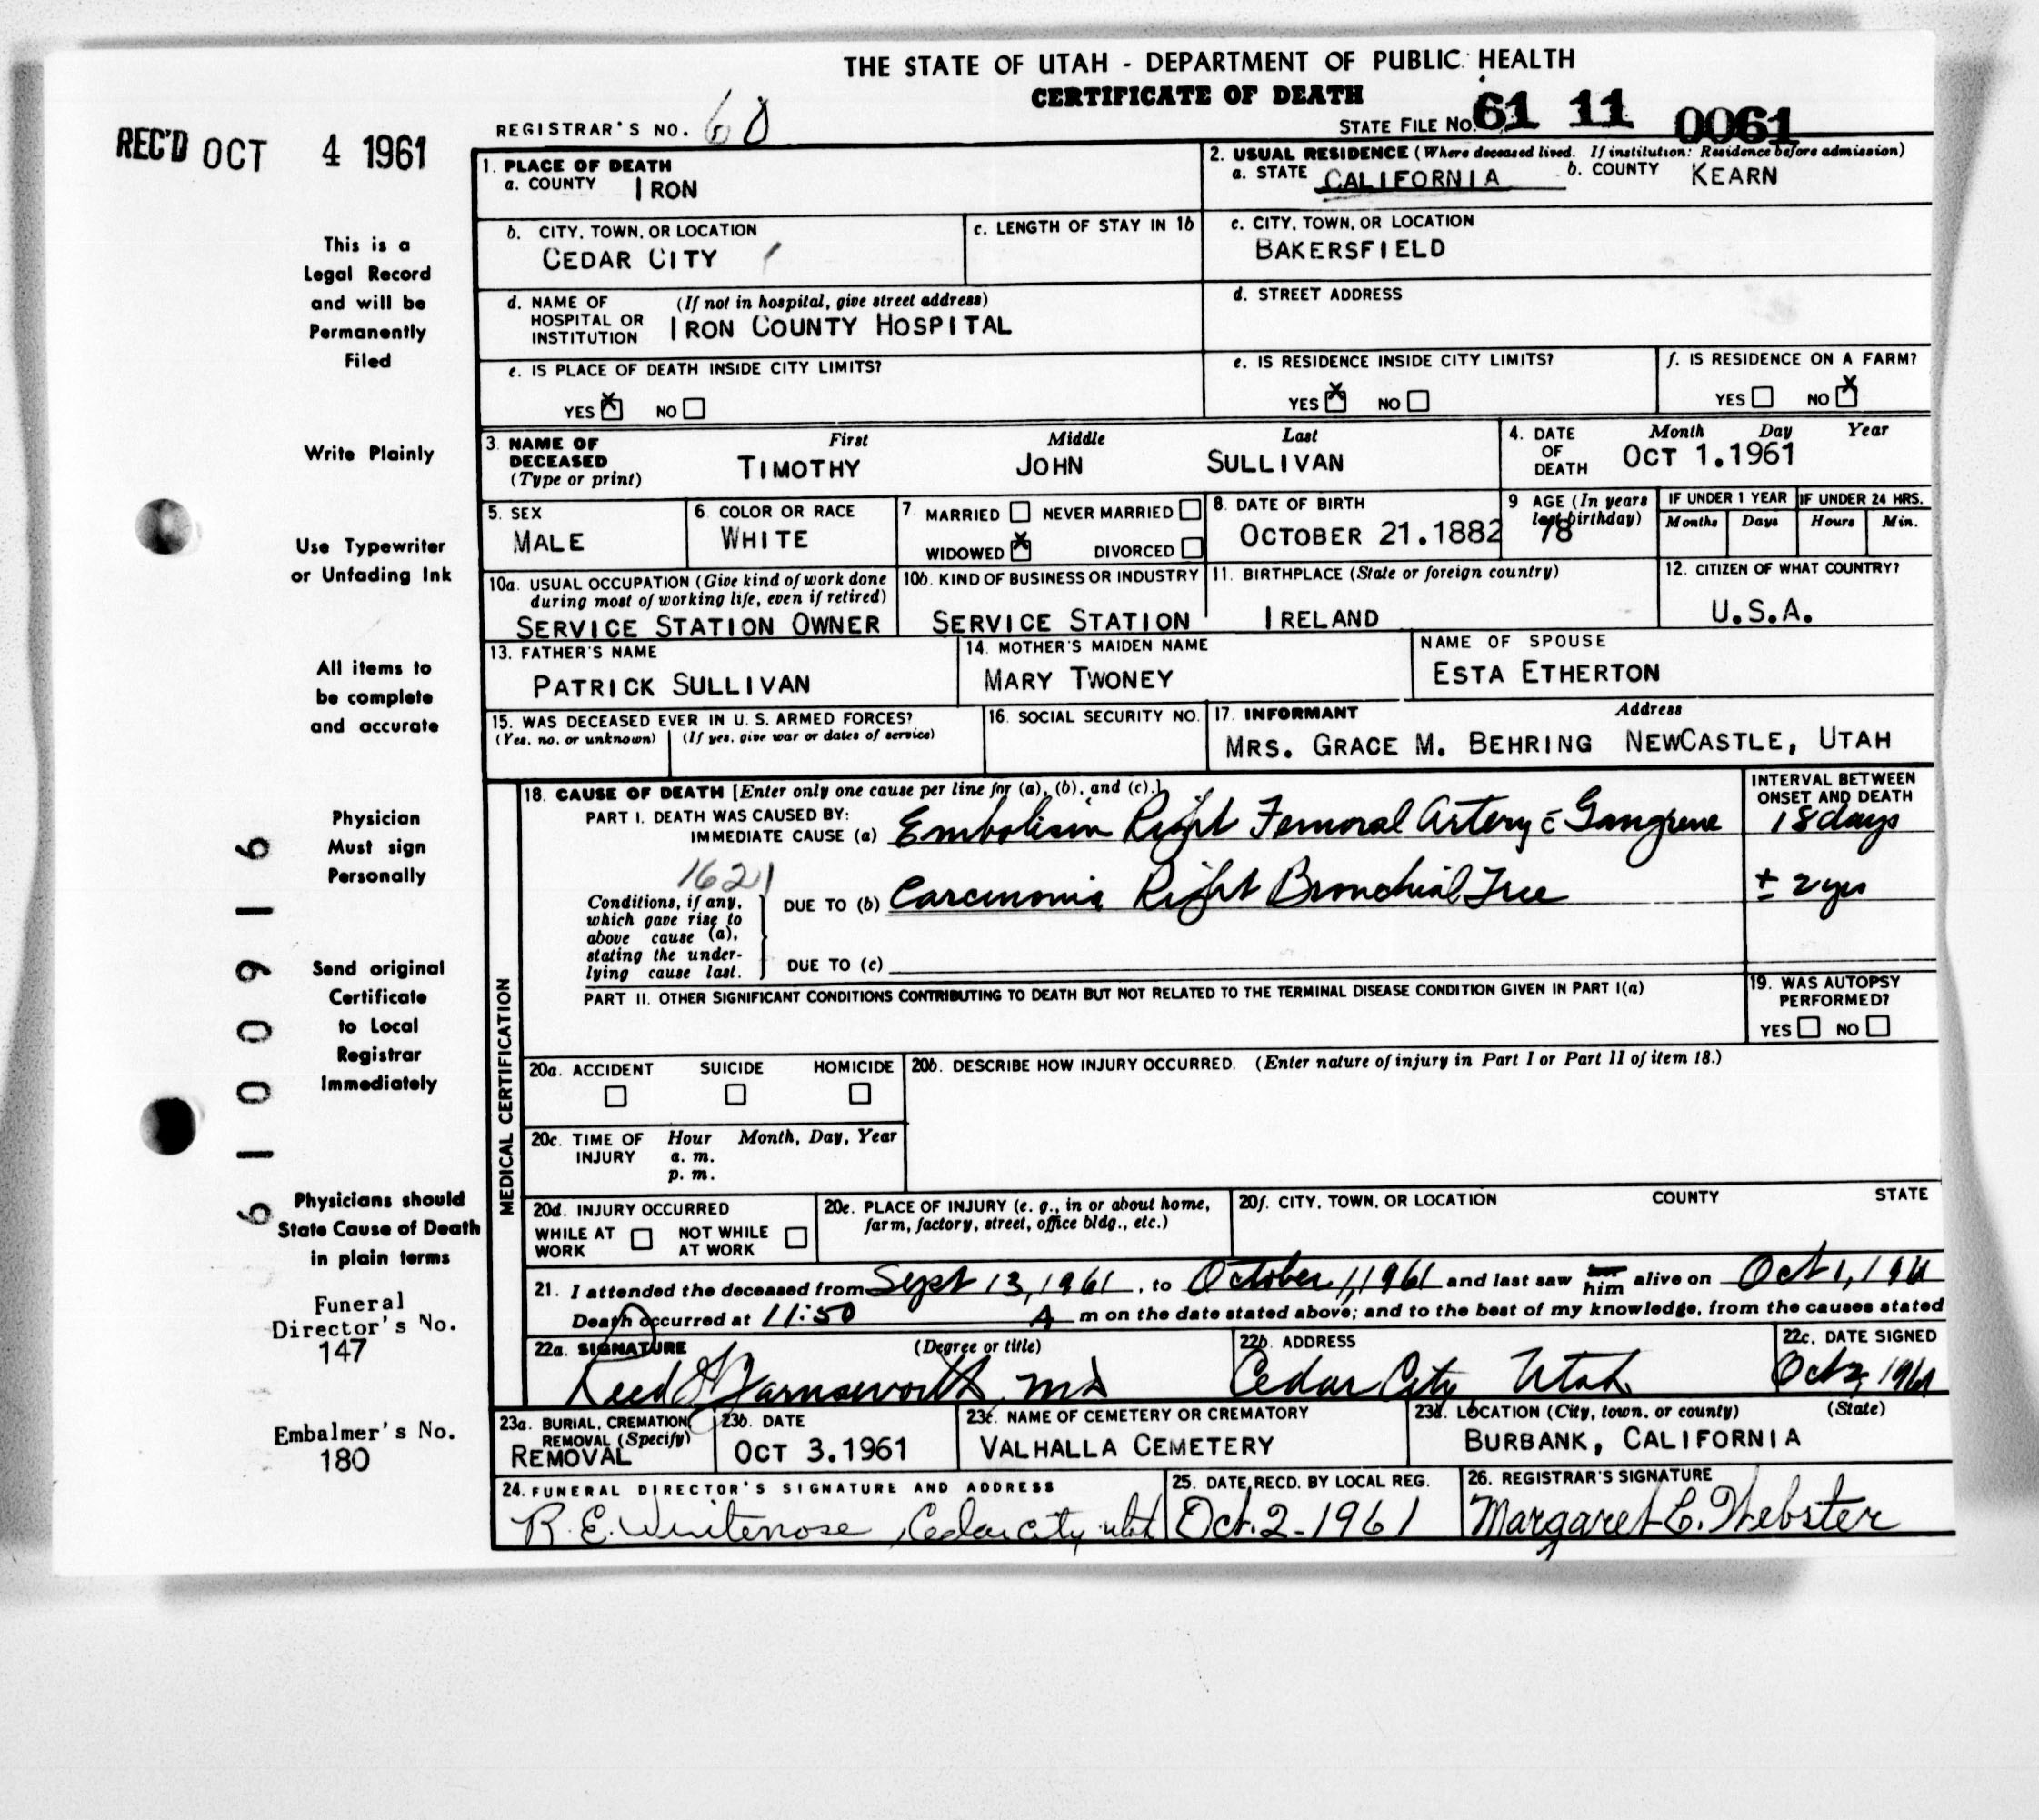 THE STATE OF UTAH - DEPARTMENT OF PUBLIC HEALTH
CERTIFICATE OF DEATH
REC'D OCT 4 1961
REGISTRAR'S NO. 60
STATE FILE NO. 61 11 0061
1. PLACE OF DEATH
a. COUNTY IRON
2. USUAL RESIDENCE (Where deceased lived. If institution: Residence before admission)
a. STATE CALIFORNIA b. COUNTY KEARN
b. CITY, TOWN, OR LOCATION
CEDAR CITY
c. LENGTH OF STAY IN 1b
c. CITY, TOWN, OR LOCATION
BAKERSFIELD
d. NAME OF HOSPITAL OR INSTITUTION (If not in hospital, give street address)
IRON COUNTY HOSPITAL
d. STREET ADDRESS
e. IS PLACE OF DEATH INSIDE CITY LIMITS?
YES X NO
e. IS RESIDENCE INSIDE CITY LIMITS?
YES X NO
f. IS RESIDENCE ON A FARM?
YES NO X
3. NAME OF DECEASED (Type or print)
First Middle Last
TIMOTHY JOHN SULLIVAN
4. DATE OF DEATH Month Day Year
OCT 1.1961
5. SEX
MALE
6. COLOR OR RACE
WHITE
7. MARRIED NEVER MARRIED
WIDOWED X DIVORCED
8. DATE OF BIRTH
OCTOBER 21.1882
9 AGE (In years last birthday)
78
IF UNDER 1 YEAR IF UNDER 24 HRS.
Months Days Hours Min.
10a. USUAL OCCUPATION (Give kind of work done during most of working life, even if retired)
SERVICE STATION OWNER
10b. KIND OF BUSINESS OR INDUSTRY
SERVICE STATION
11. BIRTHPLACE (State or foreign country)
IRELAND
12. CITIZEN OF WHAT COUNTRY?
U.S.A.
13. FATHER'S NAME
PATRICK SULLIVAN
14. MOTHER'S MAIDEN NAME
MARY TWONEY
NAME OF SPOUSE
ESTA ETHERTON
15. WAS DECEASED EVER IN U. S. ARMED FORCES?
(Yes, no, or unknown) (If yes, give war or dates of service)
16. SOCIAL SECURITY NO.
17. INFORMANT Address
MRS. GRACE M. BEHRING NEWCASTLE, UTAH
MEDICAL CERTIFICATION
18. CAUSE OF DEATH [Enter only one cause per line for (a), (b), and (c).]
INTERVAL BETWEEN ONSET AND DEATH
PART I. DEATH WAS CAUSED BY:
IMMEDIATE CAUSE (a) Embolism Right Femoral Artery c̄ Gangrene 18 days
1621
Conditions, if any, which gave rise to above cause (a), stating the underlying cause last.
DUE TO (b) Carcinoma Right Bronchial Tree ± 2 yrs
DUE TO (c)
PART II. OTHER SIGNIFICANT CONDITIONS CONTRIBUTING TO DEATH BUT NOT RELATED TO THE TERMINAL DISEASE CONDITION GIVEN IN PART I(a)
19. WAS AUTOPSY PERFORMED?
YES NO
20a. ACCIDENT SUICIDE HOMICIDE
20b. DESCRIBE HOW INJURY OCCURRED. (Enter nature of injury in Part I or Part II of item 18.)
20c. TIME OF INJURY Hour Month, Day, Year
a. m.
p. m.
20d. INJURY OCCURRED
WHILE AT WORK NOT WHILE AT WORK
20e. PLACE OF INJURY (e. g., in or about home, farm, factory, street, office bldg., etc.)
20f. CITY, TOWN, OR LOCATION COUNTY STATE
21. I attended the deceased from Sept 13, 1961, to October 1, 1961 and last saw her him alive on Oct 1, 1961
Death occurred at 11:50 A m on the date stated above; and to the best of my knowledge, from the causes stated
22a. SIGNATURE (Degree or title)
Reed Farnsworth MD
22b. ADDRESS
Cedar City Utah
22c. DATE SIGNED
Oct 2, 1961
23a. BURIAL, CREMATION, REMOVAL (Specify)
REMOVAL
23b. DATE
OCT 3.1961
23c. NAME OF CEMETERY OR CREMATORY
VALHALLA CEMETERY
23d. LOCATION (City, town, or county) (State)
BURBANK, CALIFORNIA
24. FUNERAL DIRECTOR'S SIGNATURE AND ADDRESS
R. E. Whitenose, Cedar City, Utah
25. DATE RECD. BY LOCAL REG.
Oct. 2-1961
26. REGISTRAR'S SIGNATURE
Margaret C. Webster
This is a
Legal Record
and will be
Permanently
Filed
Write Plainly
Use Typewriter
or Unfading Ink
All items to
be complete
and accurate
Physician
Must sign
Personally
Send original
Certificate
to Local
Registrar
Immediately
Physicians should
State Cause of Death
in plain terms
Funeral
Director's No.
147
Embalmer's No.
180
61000916